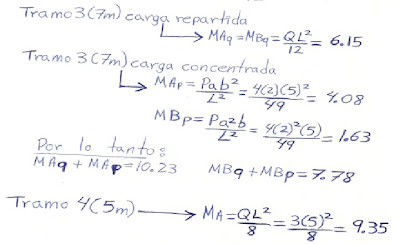 Tramo 3(7m) carga repartida
→ MAq = MBq = QL²/12 = 6.15
Tramo 3(7m) carga concentrada
→ MAp = Pab²/L² = 4(2)(5)²/49 = 4.08
MBp = Pa²b/L² = 4(2)²(5)/49 = 1.63
Por lo tanto:
MAq + MAp = 10.23 MBq + MBp = 7.78
Tramo 4(5m) → MA = QL²/8 = 3(5)²/8 = 9.35